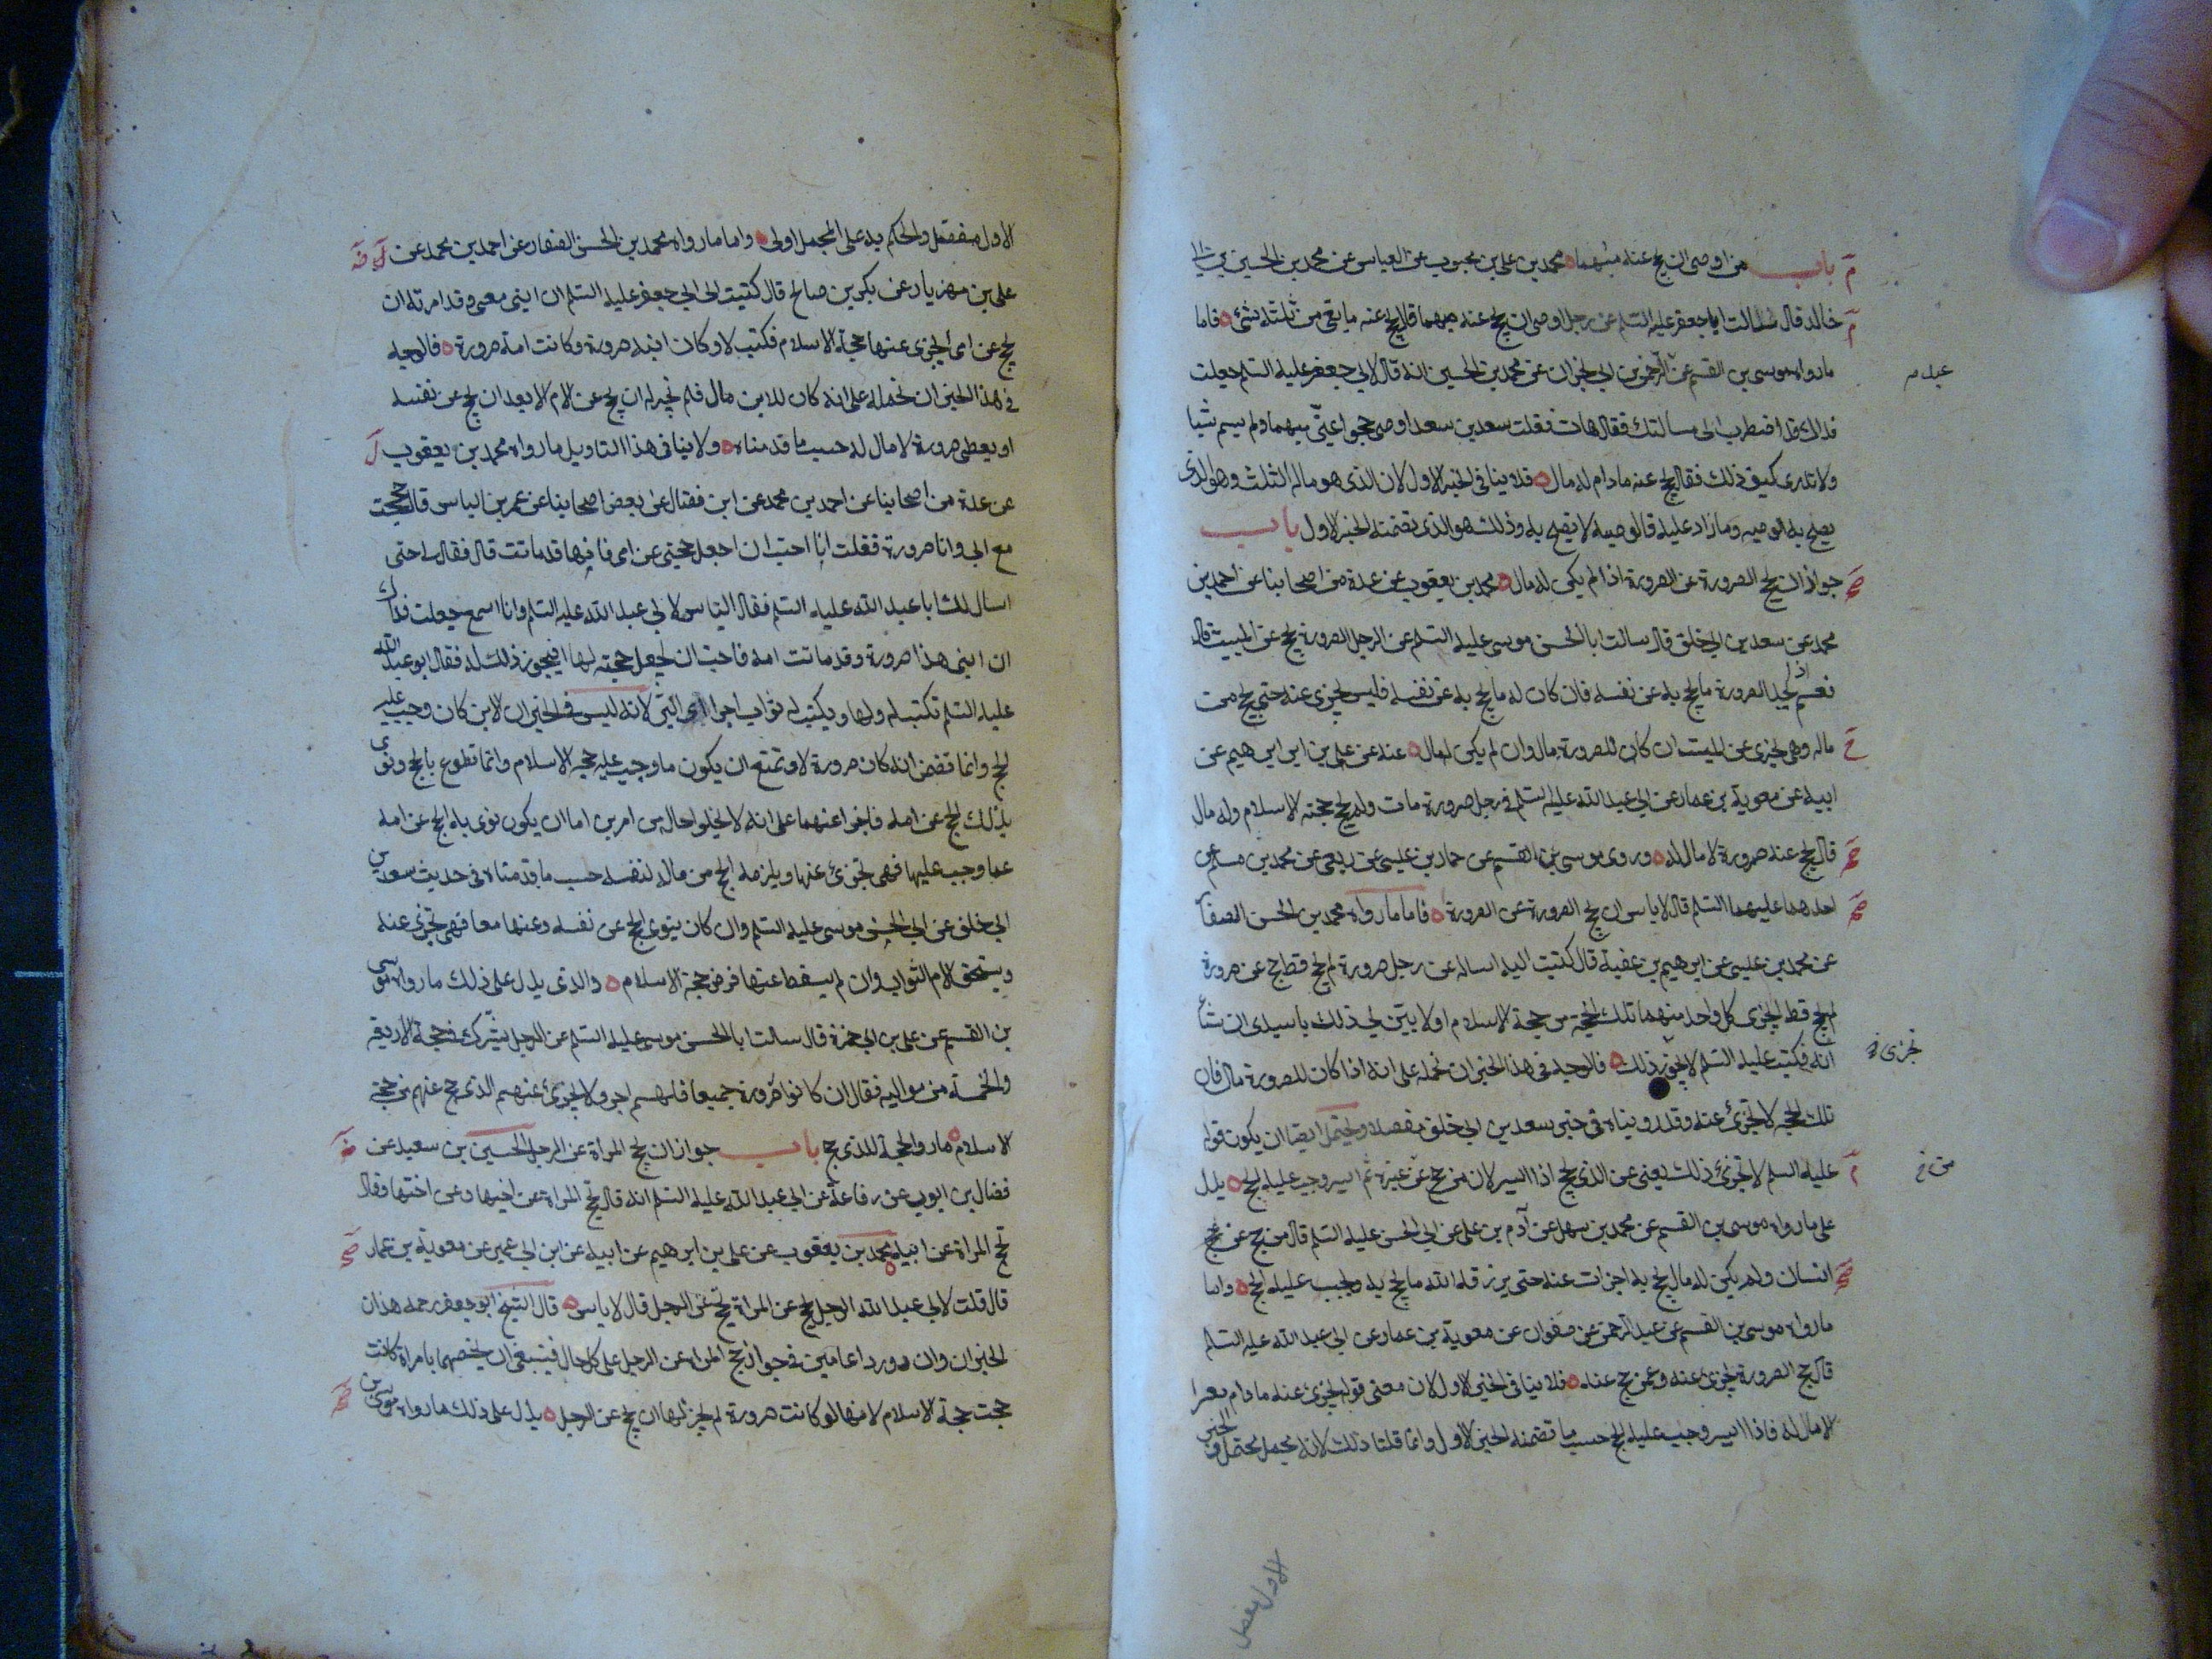 باب من اوصى ان يحج عنه مبهما محمد بن علي بن محبوب عن العباس عن محمد بن الحسين بن ابي
خالد قال سالت ابا جعفر عليه السلم عن رجل اوصى ان يحج عنه مبهما قال يحج عنه ما بقي من ثلثه شئ فاما
ما رواه موسى بن القسم عن عبد الرحمن بن ابي نجران عن محمد بن الحسين انه قال لابي جعفر عليه السلم جعلت
فداك قد اضطررت الى مسالتك فقال هات فقلت سعد بن سعد اوصى حجوا عني مبهما ولم يسم شيا
ولا ندرى كيف ذلك فقال يحج عنه ما دام له مال فلا ينافي الخبر الاول لان الذي هو ماله الثلث وهو الذي
يصح به الوصيه وما زاد عليه فالوصية لا يصح به وذلك هو الذي تضمنه الخبر الاول باب
جواز ان يحج الصرورة عن الصرورة اذا لم يكن له مال محمد بن يعقوب عن عدة من اصحابنا عن احمد بن
محمد عن سعد بن ابي خلف قال سالت ابا الحسن موسى عليه السلم عن الرجل الصرورة يحج عن الميت قال
نعم اذا لم يجد الصرورة ما يحج به عن نفسه فان كان له ما يحج به عن نفسه فليس يجزى عنه حتى يحج من
ماله وهي يجزى عن الميت ان كان للصرورة مال وان لم يكن له مال عنه عن علي بن ابراهيم عن
ابيه عن معوية بن عمار عن ابي عبد الله عليه السلم في رجل صرورة مات ولم يحج حجة الاسلام وله مال
قال يحج عنه صرورة لا مال له وروى موسى بن القسم عن حماد بن عيسى عن ربعي عن محمد بن مسلم عن
احدهما عليهما السلم قال لا باس ان يحج الصرورة عن الصرورة فاما ما رواه محمد بن الحسن الصفار
عن محمد بن عيسى عن ابرهيم بن عقبة قال كتبت اليه اساله عن رجل صرورة لم يحج قط حج عن صرورة
لم يحج قط ايجزى كل واحد منهما تلك الحجة من حجة الاسلام او لا بين لي ذلك يا سيدى ان شاء
الله فكتب عليه السلم لا يجوز ذلك فالوجه في هذا الخبر ان نحمله على انه اذا كان للصرورة مال فان
تلك الحجة لا تجزئ عنه وقد روينا في خبر سعد بن ابي خلف مفصلا ويحتمل ايضا ان يكون قوله
عليه السلم لا تجزئ ذلك يعني عن الذي يحج اذا ايسر لان من حج عن غيره ثم ايسر وجب عليه الحج يدل
على ما رواه موسى بن القسم عن محمد بن سهل عن آدم بن علي عن ابي الحسن عليه السلم قال من حج عن
انسان ولم يكن له مال يحج به اجزات عنه حتى يرزقه الله ما يحج به ويجب عليه الحج واما
ما رواه موسى بن القسم عن عبد الرحمن عن صفوان عن معوية بن عمار عن ابي عبد الله عليه السلم
قال حج الصرورة يجزئ عنه وعمن حج عنه فلا ينافي الخبر الاول لان معنى قوله يجزئ عنه ما دام معسرا
لا مال له فاذا ايسر وجب عليه الحج حسب ما تضمنه الخبر الاول وانما قلنا ذلك لانه مجمل محتمل والخبر
عبد م
تجزى
من خ
الاول مفصل
الاول مفصل والحكم به على المجمل اولى واما ما رواه محمد بن الحسن الصفار عن احمد بن محمد عن
علي بن مهزيار عن بكر بن صالح قال كتبت الى ابي جعفر عليه السلم ان ابني معي وقد امرته ان
يحج عن امي ايجزى عنها حجة الاسلام فكتب لا وكان ابنه صرورة وكانت امه صرورة فالوجه
في هذا الخبر ان نحمله على انه كان للابن مال فلم يجز له ان يحج عن الام الا بعد ان يحج عن نفسه
او يعطى صرورة لا مال له حسب ما قدمناه ولا ينافي هذا التاويل ما رواه محمد بن يعقوب
عن عدة من اصحابنا عن احمد بن محمد عن ابن فضال عن بعض اصحابنا عن عمر بن الياس قال حججت
مع ابي وانا صرورة فقلت انا احب ان اجعل حجتي عن امي فانها قد ماتت قال فقال لي حتى
اسال لك ابا عبد الله عليه السلم فقال الياس لابي عبد الله عليه السلم وانا اسمع جعلت فداك
ان ابني هذا صرورة وقد ماتت امه فاحب ان يجعل حجته لها افيجوز ذلك له فقال ابو عبد الله
عليه السلم تكتب له ولها ويكتب له ثواب اجر البر لانه ليس في الخبر ان الابن كان وجب عليه
الحج وانما تضمن انه كان صرورة ولا يمتنع ان يكون ما وجب عليه حجة الاسلام وانما تطوع بالحج ونوى
بذلك الحج عن امه فاجزا عنهما على انه لا يخلو حاله من امرين اما ان يكون نوى به الحج عن امه
عما وجب عليها فهي تجزئ عنها ويلزمه الحج من ماله لنفسه حسب ما قدمناه في حديث سعد بن
ابي خلف عن ابي الحسن موسى عليه السلم وان كان ينوى الحج عن نفسه وعنها معا فهي تجزئ عنه
ويستحق الام الثواب وان لم يسقط عنها فرض حجة الاسلام والذي يدل على ذلك ما رواه موسى
بن القسم عن علي بن ابي حمزة قال سالت ابا الحسن موسى عليه السلم عن الرجل يشرك في حجة الاربعة
والخمسة من مواليه فقال ان كانوا صرورة جميعا فلهم اجر ولا يجزئ عنهم الذي حج عنهم من حجة
الاسلام والحجة للذي حج باب جواز ان يحج المراة عن الرجل الحسين بن سعيد عن
فضال بن ايوب عن رفاعة عن ابي عبد الله عليه السلم انه قال تحج المراة عن اخيها وعن اختها وقال
تحج المراة عن ابيه محمد بن يعقوب عن علي بن ابرهيم عن ابيه عن ابن ابي عمير عن معوية بن عمار
قال قلت لابي عبد الله الرجل يحج عن المراة والمراة تحج عن الرجل قال لا باس قال الشيخ ابو جعفر رحمه هذان
الخبران وان وردا عامين في جواز حج المراة عن الرجل على كل حال فينبغي ان يخصهما بامراة كانت
حجت حجة الاسلام لانها لو كانت صرورة لم يجز لها ان يحج عن الرجل يدل على ذلك ما رواه موسى بن